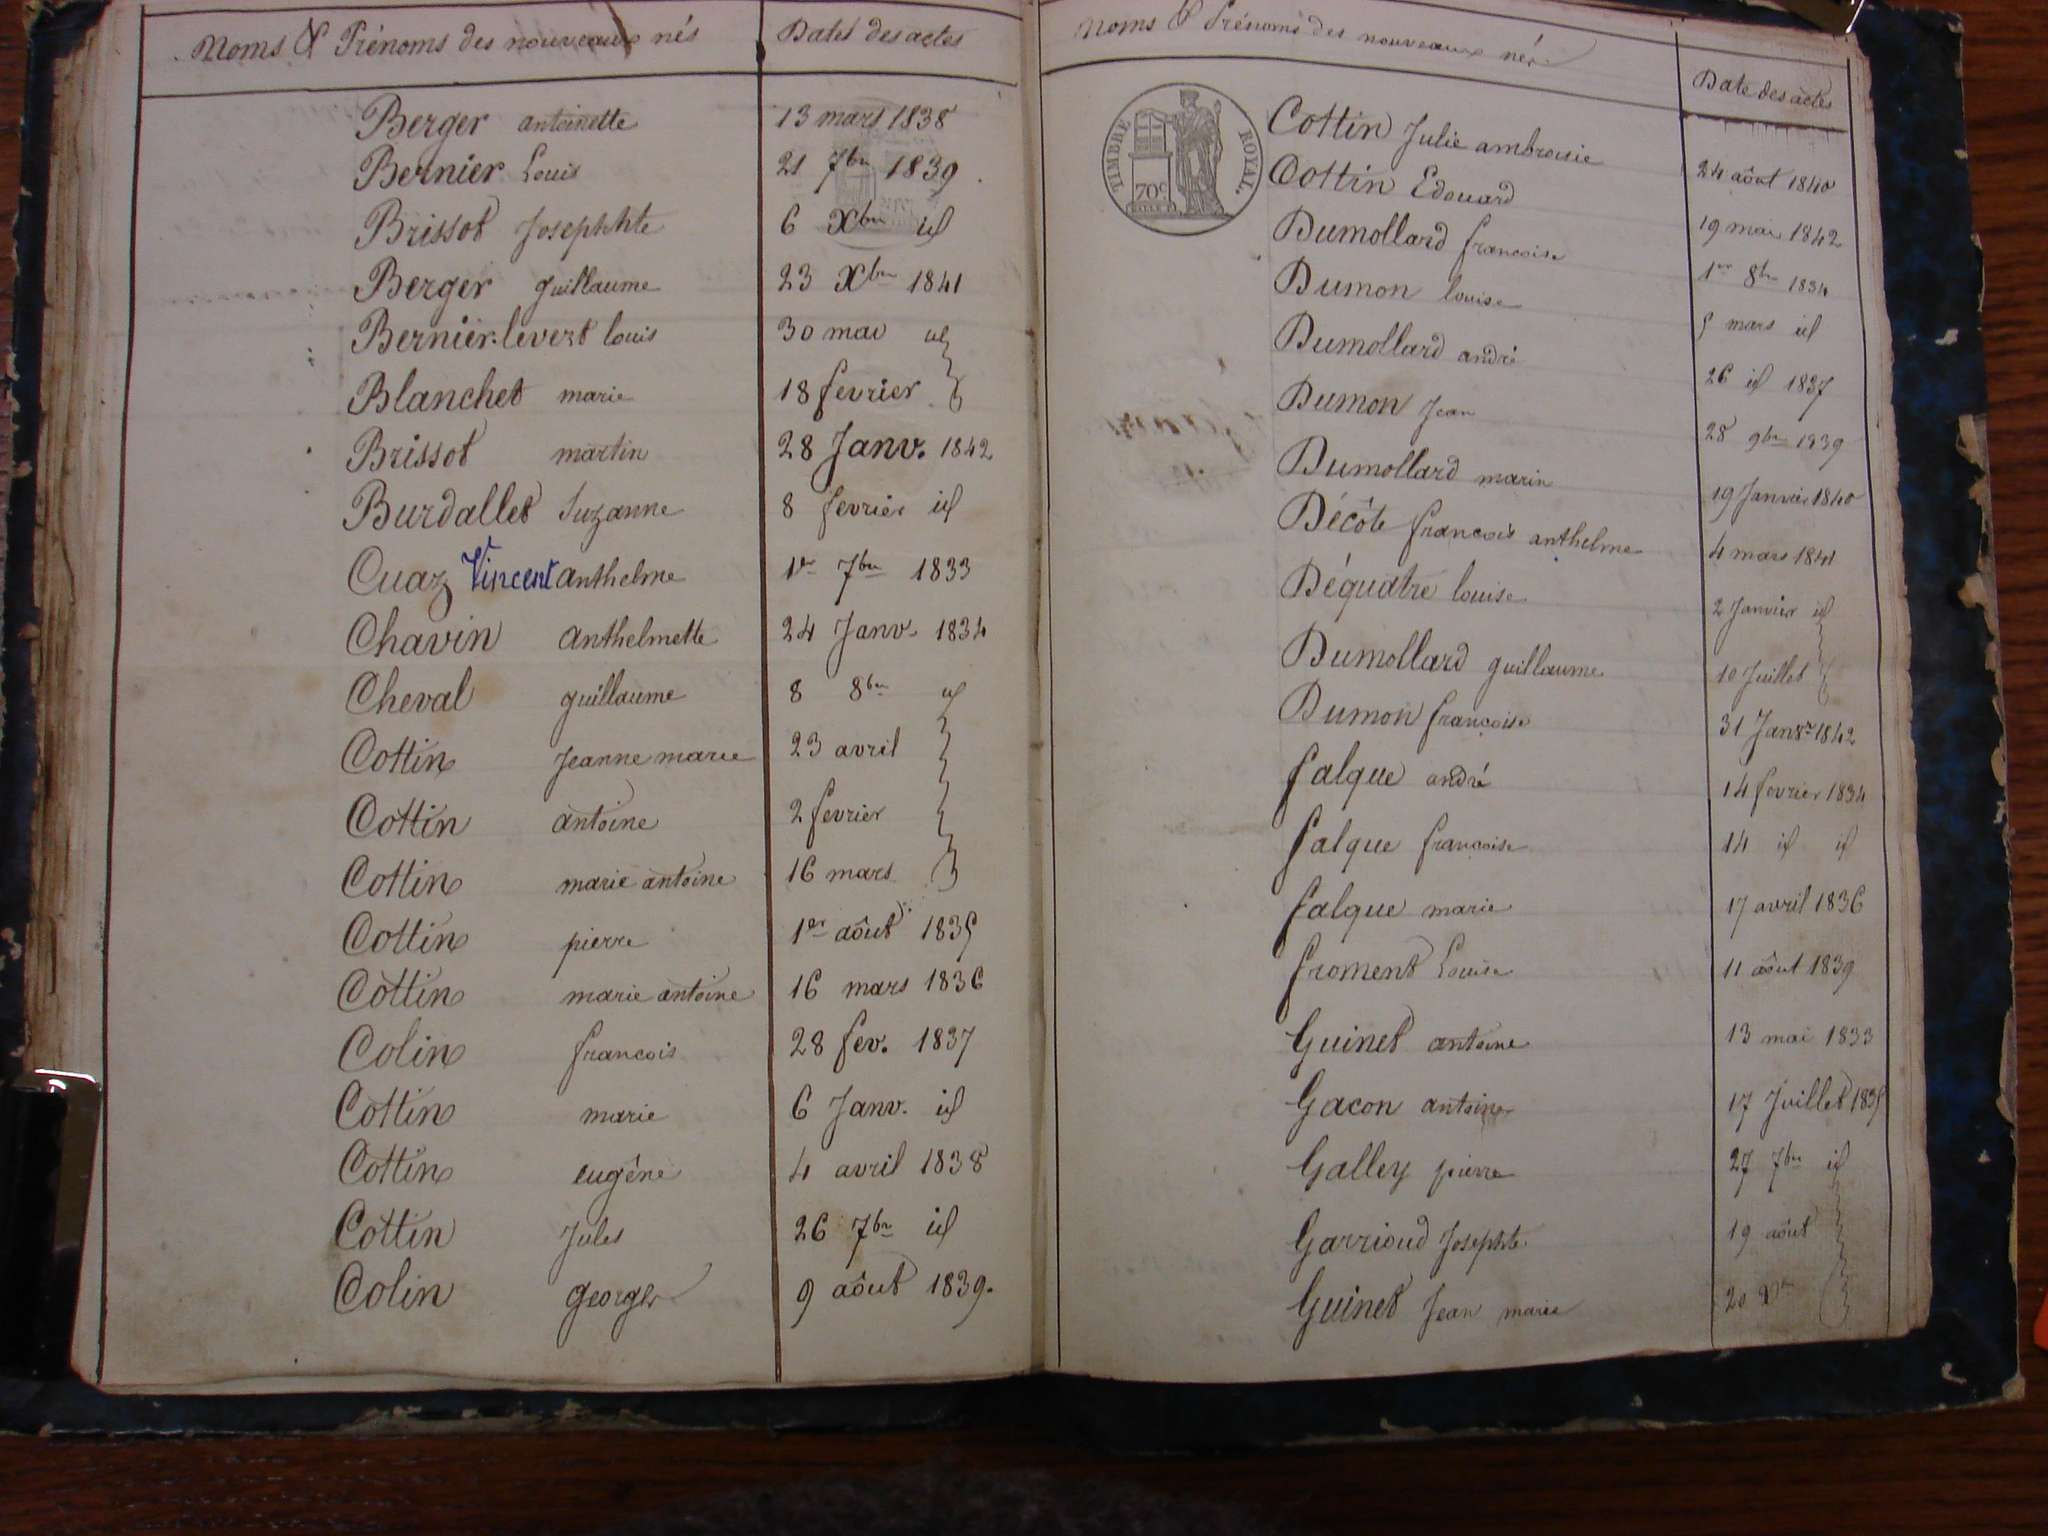 Noms & Prénoms des nouveaux nés Dates des actes
Berger antoinette 13 mars 1838
Bernier Louis 21 7bre 1839
Brissot Josephhte 6 Xbre id
Berger guillaume 23 Xbre 1841
Bernier-levert louis 30 mai id
Blanchet marie 18 fevrier
Brissot martin 28 Janv. 1842
Burdallet Suzanne 8 fevrier id
Cuaz Vincent anthelme 1er 7bre 1833
Chavin anthelmette 24 Janv. 1834
Cheval guillaume 8 8bre id
Cottin Jeanne marie 23 avril
Cottin antoine 2 fevrier
Cottin marie antoine 16 mars
Cottin pierre 1er aôut 1835
Cottin marie antoine 16 mars 1836
Colin francois 28 fev. 1837
Cottin marie 6 Janv. id
Cottin eugêne 4 avril 1838
Cottin Jules 26 7bre id
Colin georges 9 aôut 1839.
Noms & Prénoms des nouveaux nés Date des actes
TIMBRE ROYAL.
70c
Cottin Julie ambroisie 24 aôut 1840
Cottin Edouard 19 mai 1842
Dumollard francoise 1er 8bre 1834
Dumon louise 5 mars id
Dumollard andré 26 id 1837
Dumon Jean 28 9bre 1839
Dumollard marin 19 Janvier 1840
Décôte francois anthelme 4 mars 1841
Déquatre louise 2 Janvier id
Dumollard guillaume 10 Juillet
Dumon françoise 31 Janvr 1842
falque andré 14 fevrier 1834
falque françoise 14 id id
falque marie 17 avril 1836
froment Louise 11 aôut 1839
Guinet antoine 13 mai 1833
Gacon antoine 17 Juillet 1835
Galley pierre 27 7bre id
Garrioud Josephte 19 aôut
Guinet Jean marie 20 Xbre